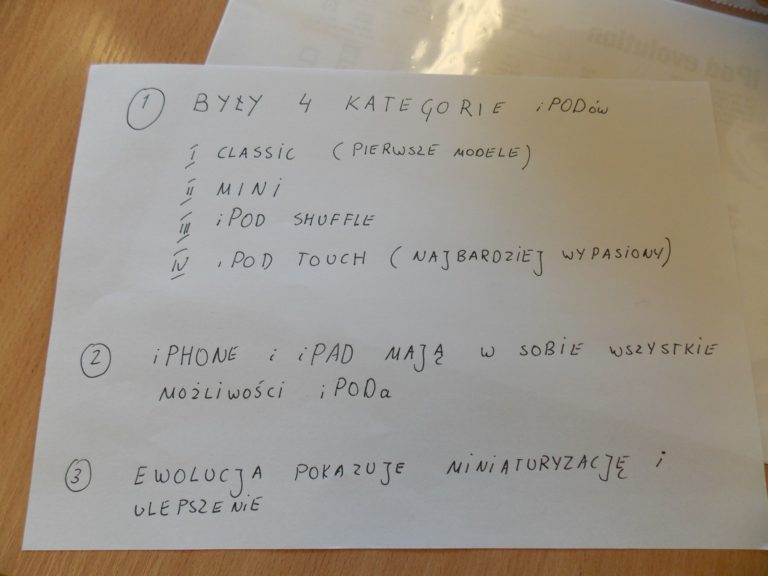 iPod evolution
1 BYŁY 4 KATEGORIE iPODów
I CLASSIC (PIERWSZE MODELE)
II MINI
III iPOD SHUFFLE
IV iPOD TOUCH (NAJBARDZIEJ WYPASIONY)
2 iPHONE i iPAD MAJĄ W SOBIE WSZYSTKIE
MOŻLIWOŚCI iPODa
3 EWOLUCJA POKAZUJE MINIATURYZACJĘ i
ULEPSZENIE